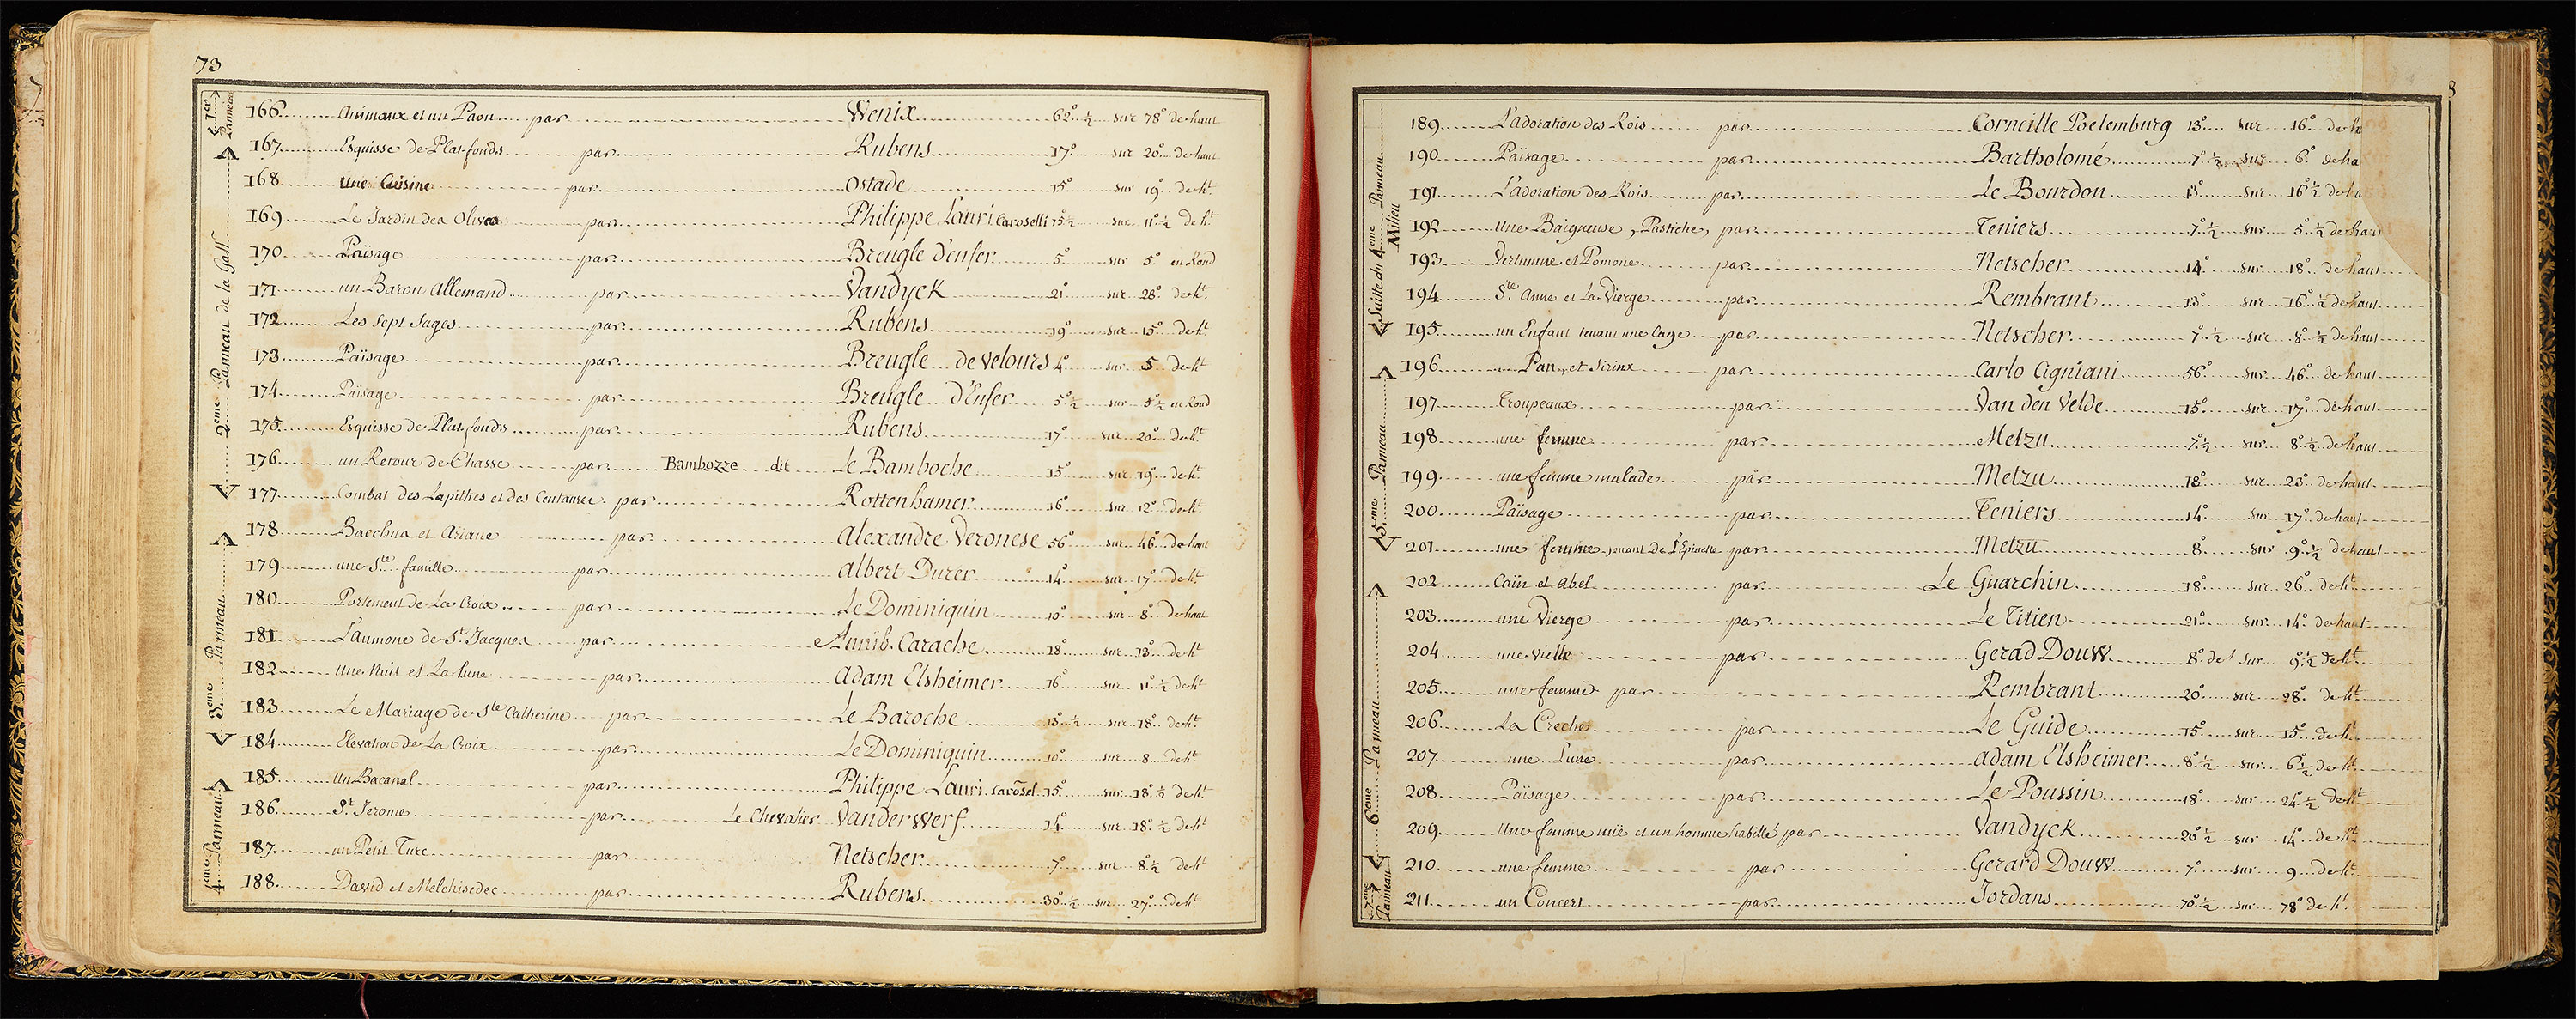 73
1er Panneau
166 Animaux et un Paon par Wenix 62° ½ sur 78° de haut
2eme Panneau de la Gall.
167 Esquisse de Plat-fonds par Rubens 17° sur 20° de haut
168 une Cuisine par Ostade 15° sur 19° de ht
169 Le Jardin des Olives par Philippe Lauri Caroselli 15°½ sur 11°½ de ht
170 Païsage par Breugle d'enfer 5° sur 5° en Rond
171 un Baron Allemand par Vandyck 21° sur 28° de ht
172 Les Sept Sages par Rubens 19° sur 15° de ht
173 Païsage par Breugle de velours 4° sur 5 de ht
174 Païsage par Breugle d'Enfer 5°½ sur 5°½ en Rond
175 Esquisse de Plat-fonds par Rubens 17° sur 20° de ht
176 un Retour de Chasse par Bambozze dit Le Bamboche 15° sur 19° de ht
177 Combat des Lapithes et des Centaures par Rottenhamer 16° sur 12° de ht
3eme Panneau
178 Bacchus et Ariane par Alexandre Veronese 56° sur 46° de haut
179 une Ste famille par Albert Durer 14° sur 17° de ht
180 Portement de La Croix par Le Dominiquin 10° sur 8° de haut
181 L'aumone de St Jacques par Annib. Carache 18° sur 13° de ht
182 une Nuit et La Lune par Adam Elsheimer 16° sur 11°½ de ht
183 Le Mariage de Ste Catherine par Le Baroche 13°½ sur 18° de ht
184 Elevation de La Croix par Le Dominiquin 10° sur 8 de ht
4eme Panneau
185 un Bacanal par Philippe Lauri Carosel. 15° sur 18°½ de ht
186 St Jerome par Le Chevalier Vanderwerf 14° sur 18°½ de ht
187 un Petit Turc par Netscher 7° sur 8°½ de ht
188 David et Melchisedec par Rubens 30°½ sur 27° de ht
8
Suitte du 4eme Panneau Milieu
189 L'adoration des Rois par Corneille Poelemburg 13° sur 16° de h
190 Païsage par Bartholomé 7°½ sur 6° de ha
191 L'adoration des Rois par Le Bourdon 13° sur 16°½ de ha
192 une Baigneuse, Pastiche, par Teniers 7°½ sur 5°½ de haut
193 Vertumne et Pomone par Netscher 14° sur 18° de haut
194 Ste Anne et La Vierge par Rembrant 13° sur 16°½ de haut
195 un Enfant tenant une Cage par Netscher 7°½ sur 8°½ de haut
5eme Panneau
196 Pan et Sirinx par Carlo Cigniani 56° sur 46° de haut
197 Troupeaux par Van den Velde 15° sur 17° de haut
198 une femme par Metzu 7°½ sur 8°½ de haut
199 une femme malade par Metzu 18° sur 23° de haut
200 Païsage par Teniers 14° sur 17° de haut
201 une femme jouant De L'Epinette par Metzu 8° sur 9°½ de haut
6eme Panneau
202 Caïn et Abel par Le Guarchin 18° sur 26° de ht
203 une Vierge par Le Titien 21° sur 14° de haut
204 une vielle par Gerad Douw 8° de l sur 9°½ de ht
205 une femme par Rembrant 20° sur 28° de ht
206 La Creche par Le Guide 15° sur 15° de ht
207 une Lune par Adam Elsheimer 8°½ sur 6°½ de ht
208 Païsage par Le Poussin 18° sur 24°½ de ht
209 une femme nuë et un homme habillé par Vandyck 20°½ sur 14° de ht
210 une femme par Gerard Douw 7° sur 9 de ht
7eme Panneau
211 un Concert par Jordans 70°½ sur 78° de ht